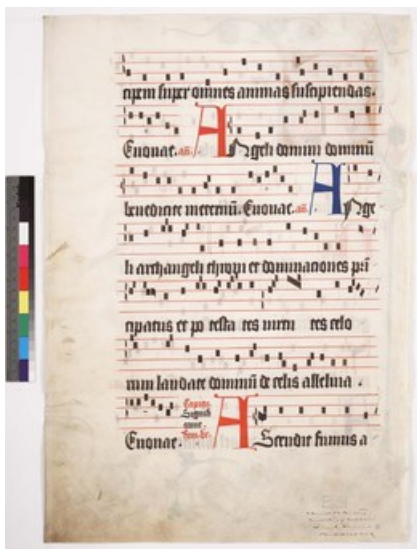 cipem super omnes animas suscipiendas.
Euouae. an. Angeli domini dominū
benedicite in eternū. Euouae. an. Ange
li archangeli throni et dominaciones pri
cipatus et po testa tes celo
rum laudate dominū de celis alleluia.
Euouae. Ascendit fumus a